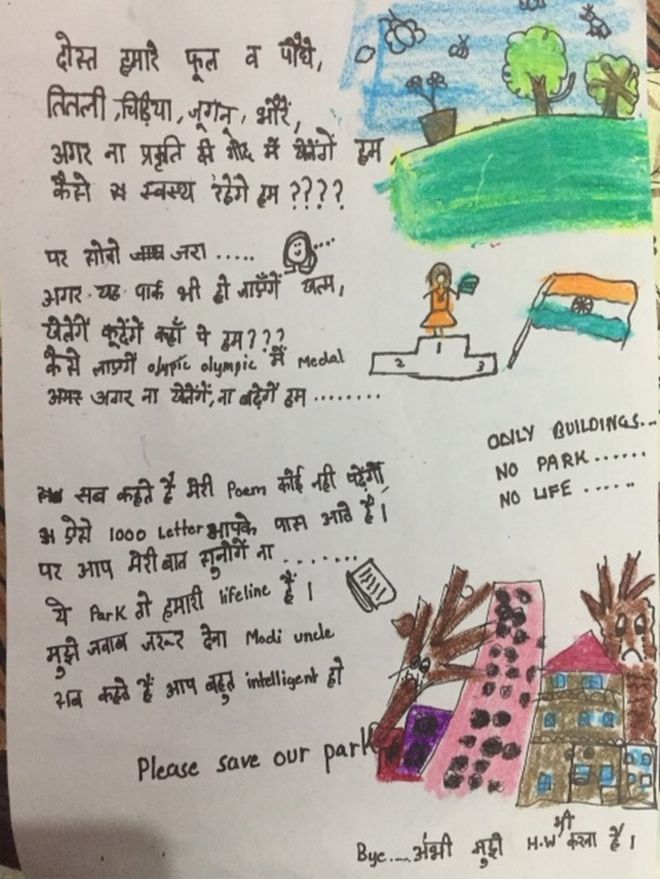 दोस्त हमारे फूल व पौधे,
तितली, चिड़िया, जूगनू, भौरें,
अगर ना प्रकृति की गोद में खेलेंगे हम
कैसे स्वस्थ रहेगें हम ????
पर सोचो जरा .....
अगर यह पार्क भी हो जाएँगें खत्म,
खेलेगें कूदेंगें कहाँ पे हम???
कैसे लाएगें olypic olympic में Medal
अगर ना खेलेगें, ना बढ़ेगें हम ........
2
1
3
ONLY BUILDINGS...
NO PARK ......
NO LIFE ......
सब कहते हैं मेरी Poem कोई नही पढ़ेगा,
ऐसे 1000 Letter आपके पास आते हैं।
पर आप मेरी बात सुनोगें ना ........
ये Park तो हमारी lifeline हैं।
मुझे जवाब जरूर देना Modi uncle
सब कहते हैं आप बहुत intelligent हो
Please save our park
Bye.... अंभी मुझे H.W भी करना हैं।